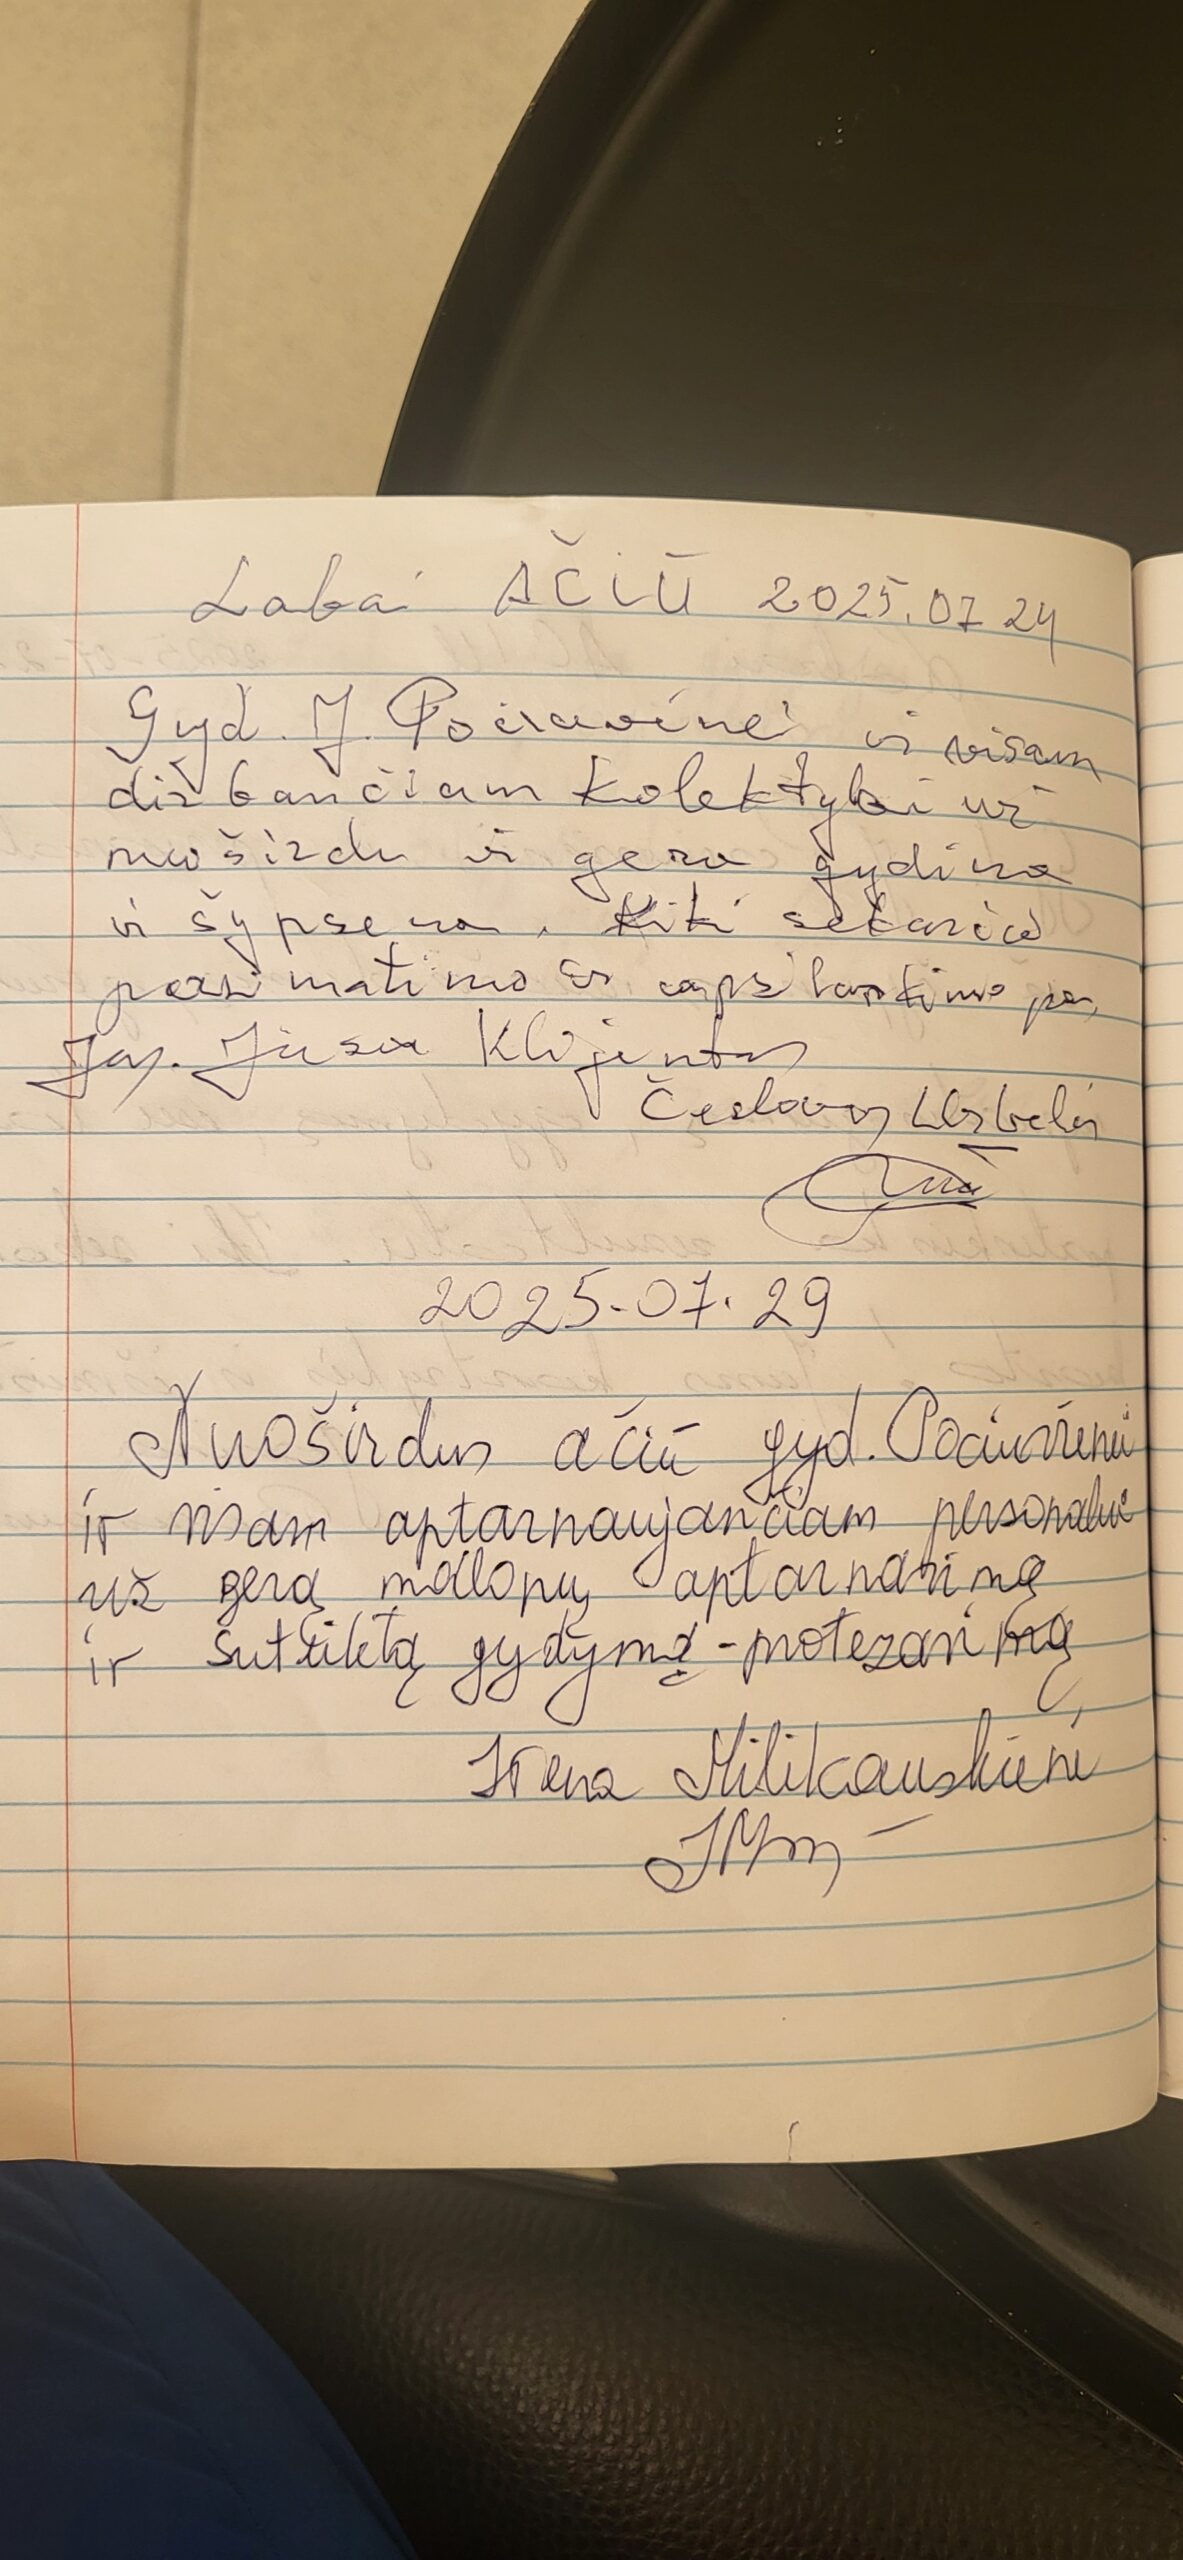 Labai AČIŪ 2025.07 24
Gyd. J. Pociuvinei ir visam
dirbančiam kolektyvi už
nuoširdu ir gera gydima
ir šypsena. Kiti sekančio
pasimatimo ir apsilankimo pas
Jus. Jūsu Klijentas
Česlovas
2025-07-29
Nuoširdus ačiū gyd. Pociuvienei
ir visam aptarnaujančiam personalui
už gerą malonų aptarnavimą
ir suteiktą gydymą-protezavimą
Irena Milikauskienė